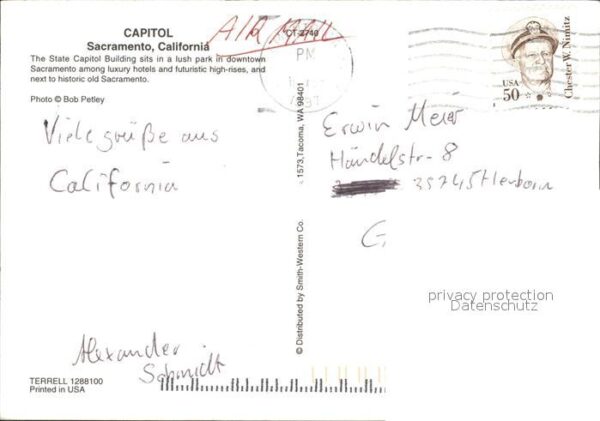 CAPITOL
Sacramento, California
The State Capitol Building sits in a lush park in downtown
Sacramento among luxury hotels and futuristic high-rises, and
next to historic old Sacramento.
Photo © Bob Petley
AIR MAIL
CT-2740
PM
USA
50
Chester W. Nimitz
Viele grüße aus
California
Alexander
Schmidt
TERRELL 1288100
Printed in USA
© Distributed by Smith-Western Co.
1573, Tacoma, WA 98401
Erwin Meier
Händelstr. 8
35745 Herborn
G
privacy protection
Datenschutz